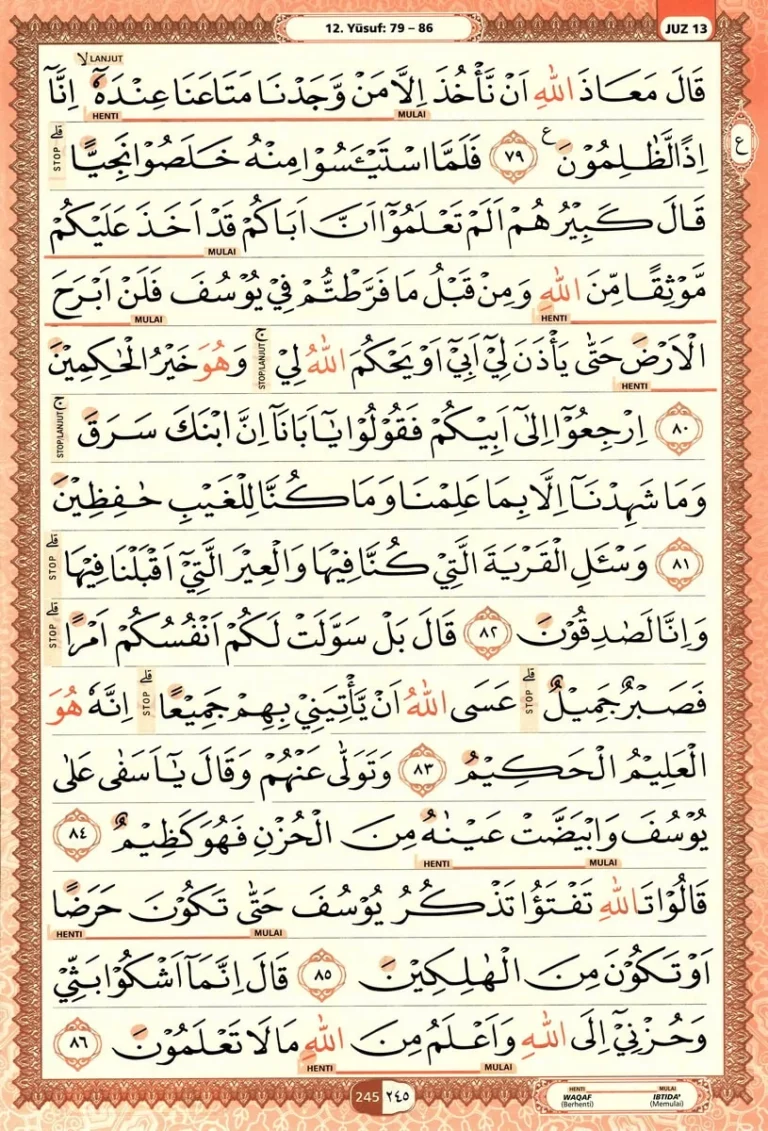 12. Yūsuf: 79 – 86
JUZ 13
لا LANJUT
قَالَ مَعَاذَ اللّٰهِ اَنْ نَّأْخُذَ اِلَّا مَنْ وَّجَدْنَا مَتَاعَنَا عِنْدَهٗٓ ۙاِنَّآ
MULAI HENTI
اِذًا لَّظٰلِمُوْنَ ࣖ ٧٩ فَلَمَّا اسْتَيْـَٔسُوْا مِنْهُ خَلَصُوْا نَجِيًّاۗ
قلى STOP
ع
قَالَ كَبِيْرُهُمْ اَلَمْ تَعْلَمُوْٓا اَنَّ اَبَاكُمْ قَدْ اَخَذَ عَلَيْكُمْ
MULAI
مَّوْثِقًا مِّنَ اللّٰهِ وَمِنْ قَبْلُ مَا فَرَّطْتُّمْ فِيْ يُوْسُفَ فَلَنْ اَبْرَحَ
HENTI MULAI
الْاَرْضَ حَتّٰى يَأْذَنَ لِيْٓ اَبِيْٓ اَوْ يَحْكُمَ اللّٰهُ لِيْۚ وَهُوَ خَيْرُ الْحٰكِمِيْنَ
STOP/LANJUT ج
HENTI
٨٠ اِرْجِعُوْٓا اِلٰٓى اَبِيْكُمْ فَقُوْلُوْا يٰٓاَبَانَآ اِنَّ ابْنَكَ سَرَقَۚ
STOP/LANJUT ج
وَمَا شَهِدْنَآ اِلَّا بِمَا عَلِمْنَا وَمَا كُنَّا لِلْغَيْبِ حٰفِظِيْنَ
٨١ وَسْـَٔلِ الْقَرْيَةَ الَّتِيْ كُنَّا فِيْهَا وَالْعِيْرَ الَّتِيْٓ اَقْبَلْنَا فِيْهَاۗ
قلى STOP
وَاِنَّا لَصٰدِقُوْنَ ٨٢ قَالَ بَلْ سَوَّلَتْ لَكُمْ اَنْفُسُكُمْ اَمْرًاۗ
قلى STOP
فَصَبْرٌ جَمِيْلٌۗ عَسَى اللّٰهُ اَنْ يَّأْتِيَنِيْ بِهِمْ جَمِيْعًاۗ اِنَّهٗ هُوَ
قلى STOP قلى STOP
الْعَلِيْمُ الْحَكِيْمُ ٨٣ وَتَوَلّٰى عَنْهُمْ وَقَالَ يٰٓاَسَفٰى عَلٰى
يُوْسُفَ وَابْيَضَّتْ عَيْنٰهُ مِنَ الْحُزْنِ فَهُوَ كَظِيْمٌ ٨٤
MULAI HENTI
قَالُوْا تَاللّٰهِ تَفْتَؤُا تَذْكُرُ يُوْسُفَ حَتّٰى تَكُوْنَ حَرَضًا
MULAI HENTI
اَوْ تَكُوْنَ مِنَ الْهٰلِكِيْنَ ٨٥ قَالَ اِنَّمَآ اَشْكُوْا بَثِّيْ
وَحُزْنِيْٓ اِلَى اللّٰهِ وَاَعْلَمُ مِنَ اللّٰهِ مَا لَا تَعْلَمُوْنَ ٨٦
MULAI HENTI
245 ٢٤٥
HENTI MULAI
WAQAF IBTIDA'
(Berhenti) (Memulai)